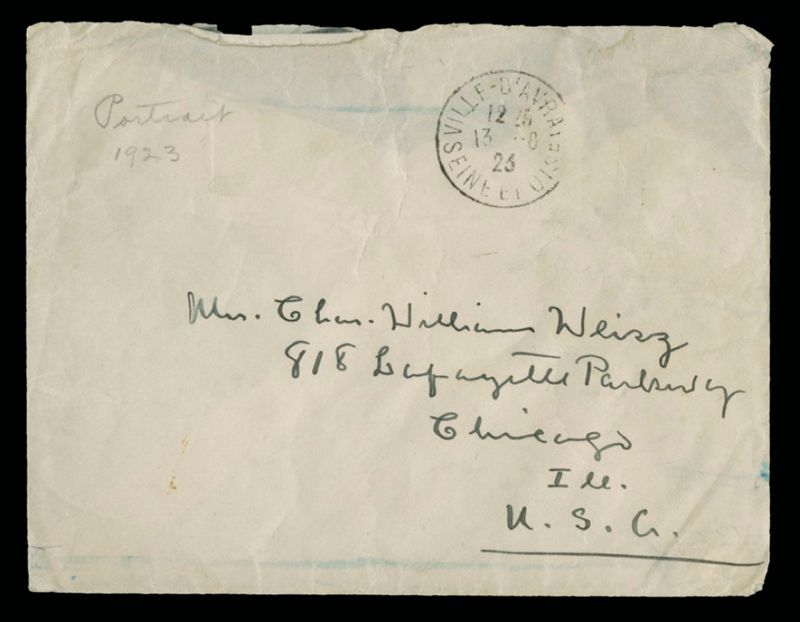 Portrait
1923
VILLE-D'AVRAY
12
13 -8
23
SEINE ET OISE
Mrs. Chas. William Weisz
818 Lafayette Parkway
Chicago
Ill.
U. S. A.